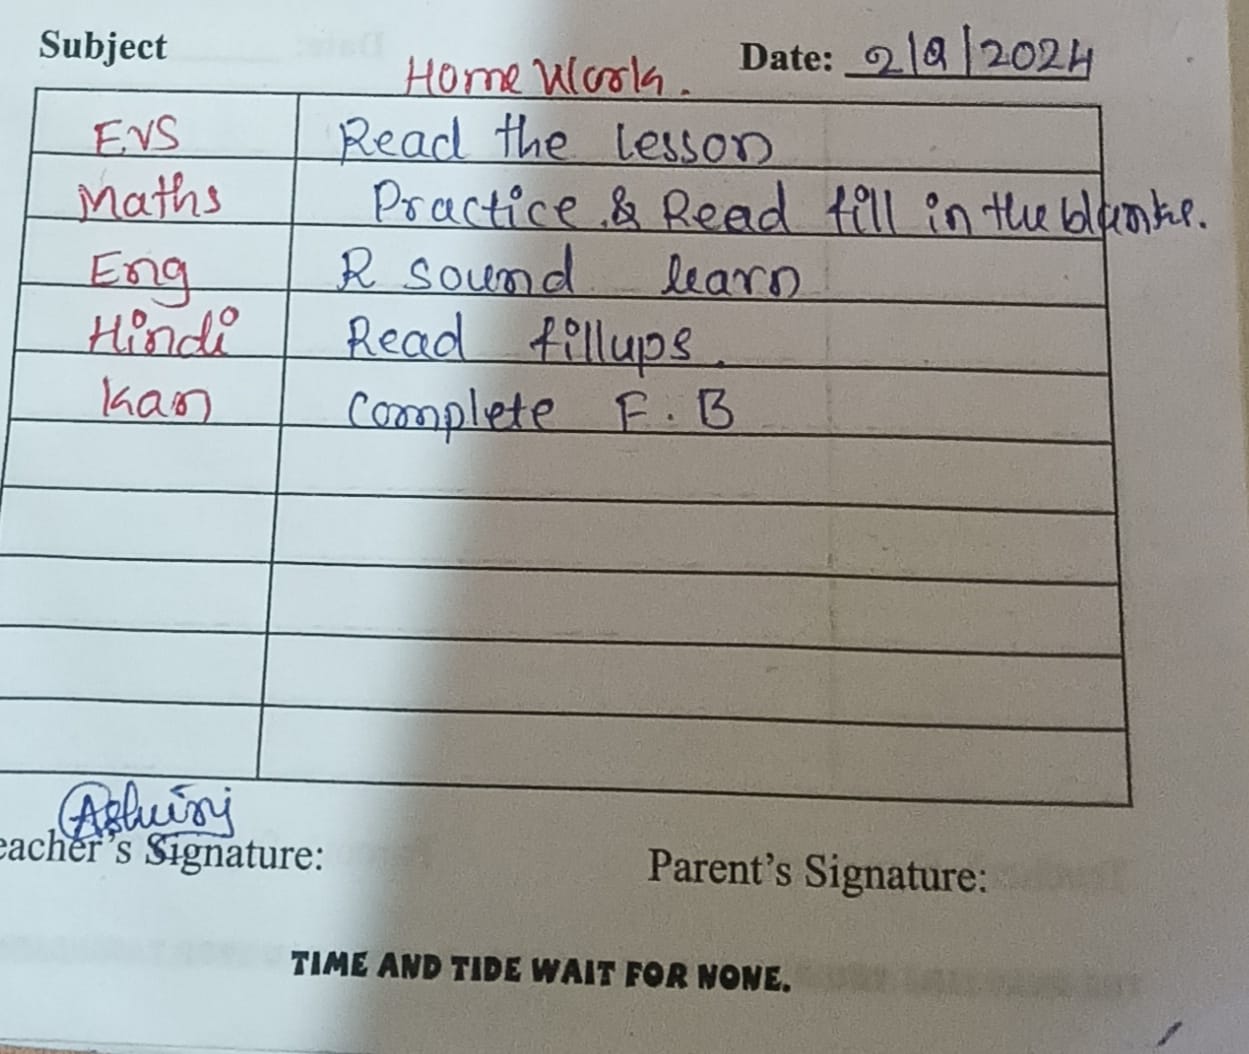 Subject
Date: 2/9/2024
Home Work.
EVS Read the lesson
Maths Practice & Read fill in the blanks.
Eng R sound learn
Hindi Read fillups.
Kan Complete F.B
Ashwini
eacher's Signature:
Parent's Signature:
TIME AND TIDE WAIT FOR NONE.